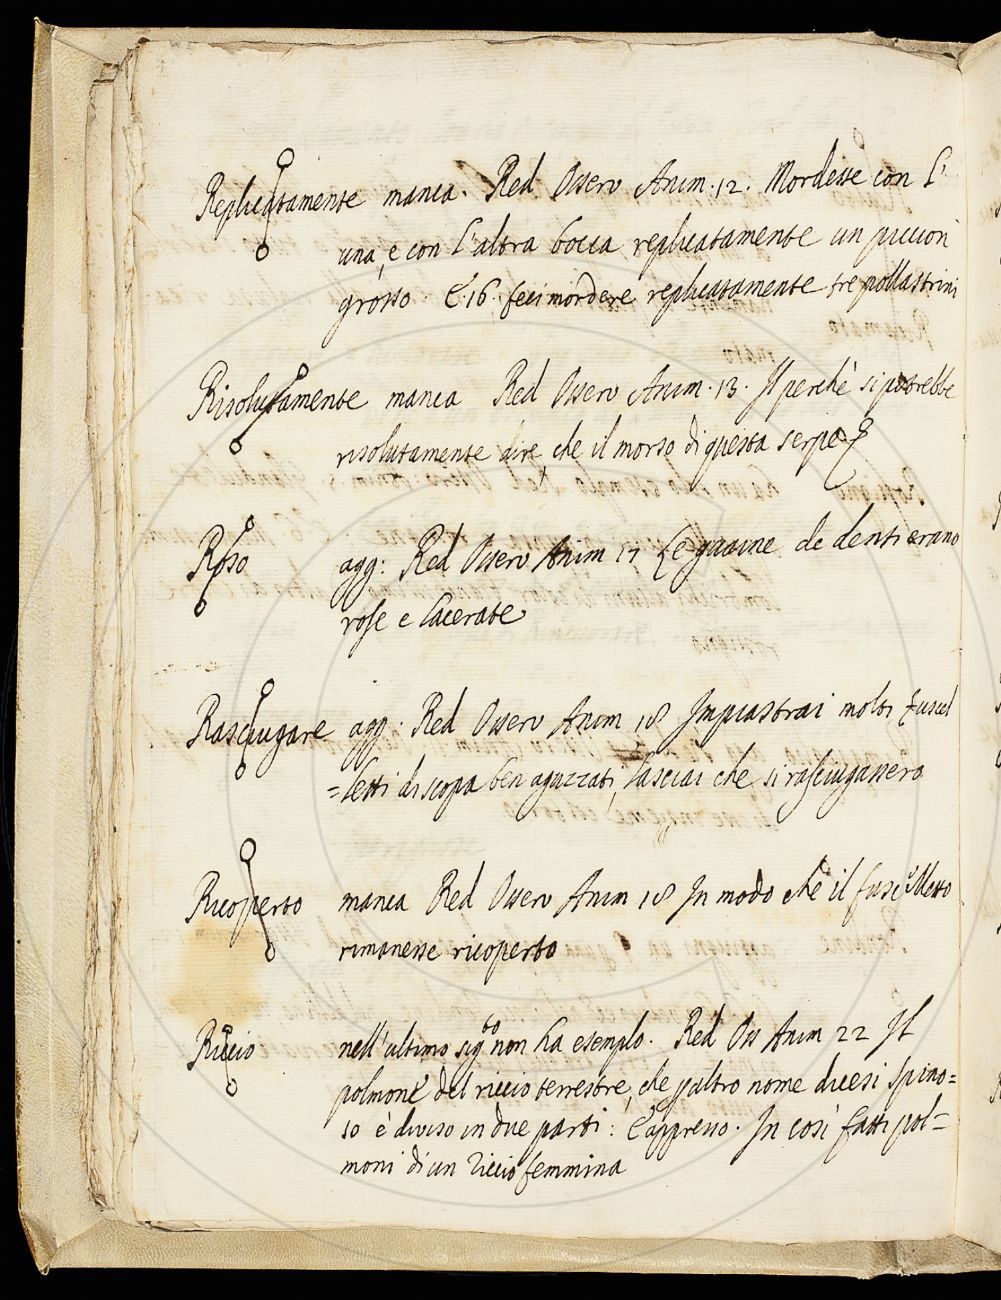 Replicatamente manca. Red Osserv Anim. 12. Mordesse con l'
una, e con l'altra bocca replicatamente un piccion
grosso. E 16. feci mordere replicatamente tre pollastrini
Risolutamente manca Red Osserv Anim. 13. Il perchè si potrebbe
risolutamente dire, che il morso di questa serpe
Roso agg: Red Osserv Anim 17 Le guaine de denti erano
rose e lacerate
Rasciugare agg. Red Osserv Anim 18 Impiastrai molti fuscel
=letti di scopa ben aguzzati, lasciai che si rasciugassero
Ricoperto manca Red Osserv Anim 18 In modo che il fuscelletto
rimanesse ricoperto
Riccio nell'ultimo sig.to non ha esemplo. Red Oss Anim 22 Il
polmone del riccio terrestre, che p altro nome dicesi spino=
so è diviso in due parti: E appresso. In così fatti pol=
moni di un riccio femmina